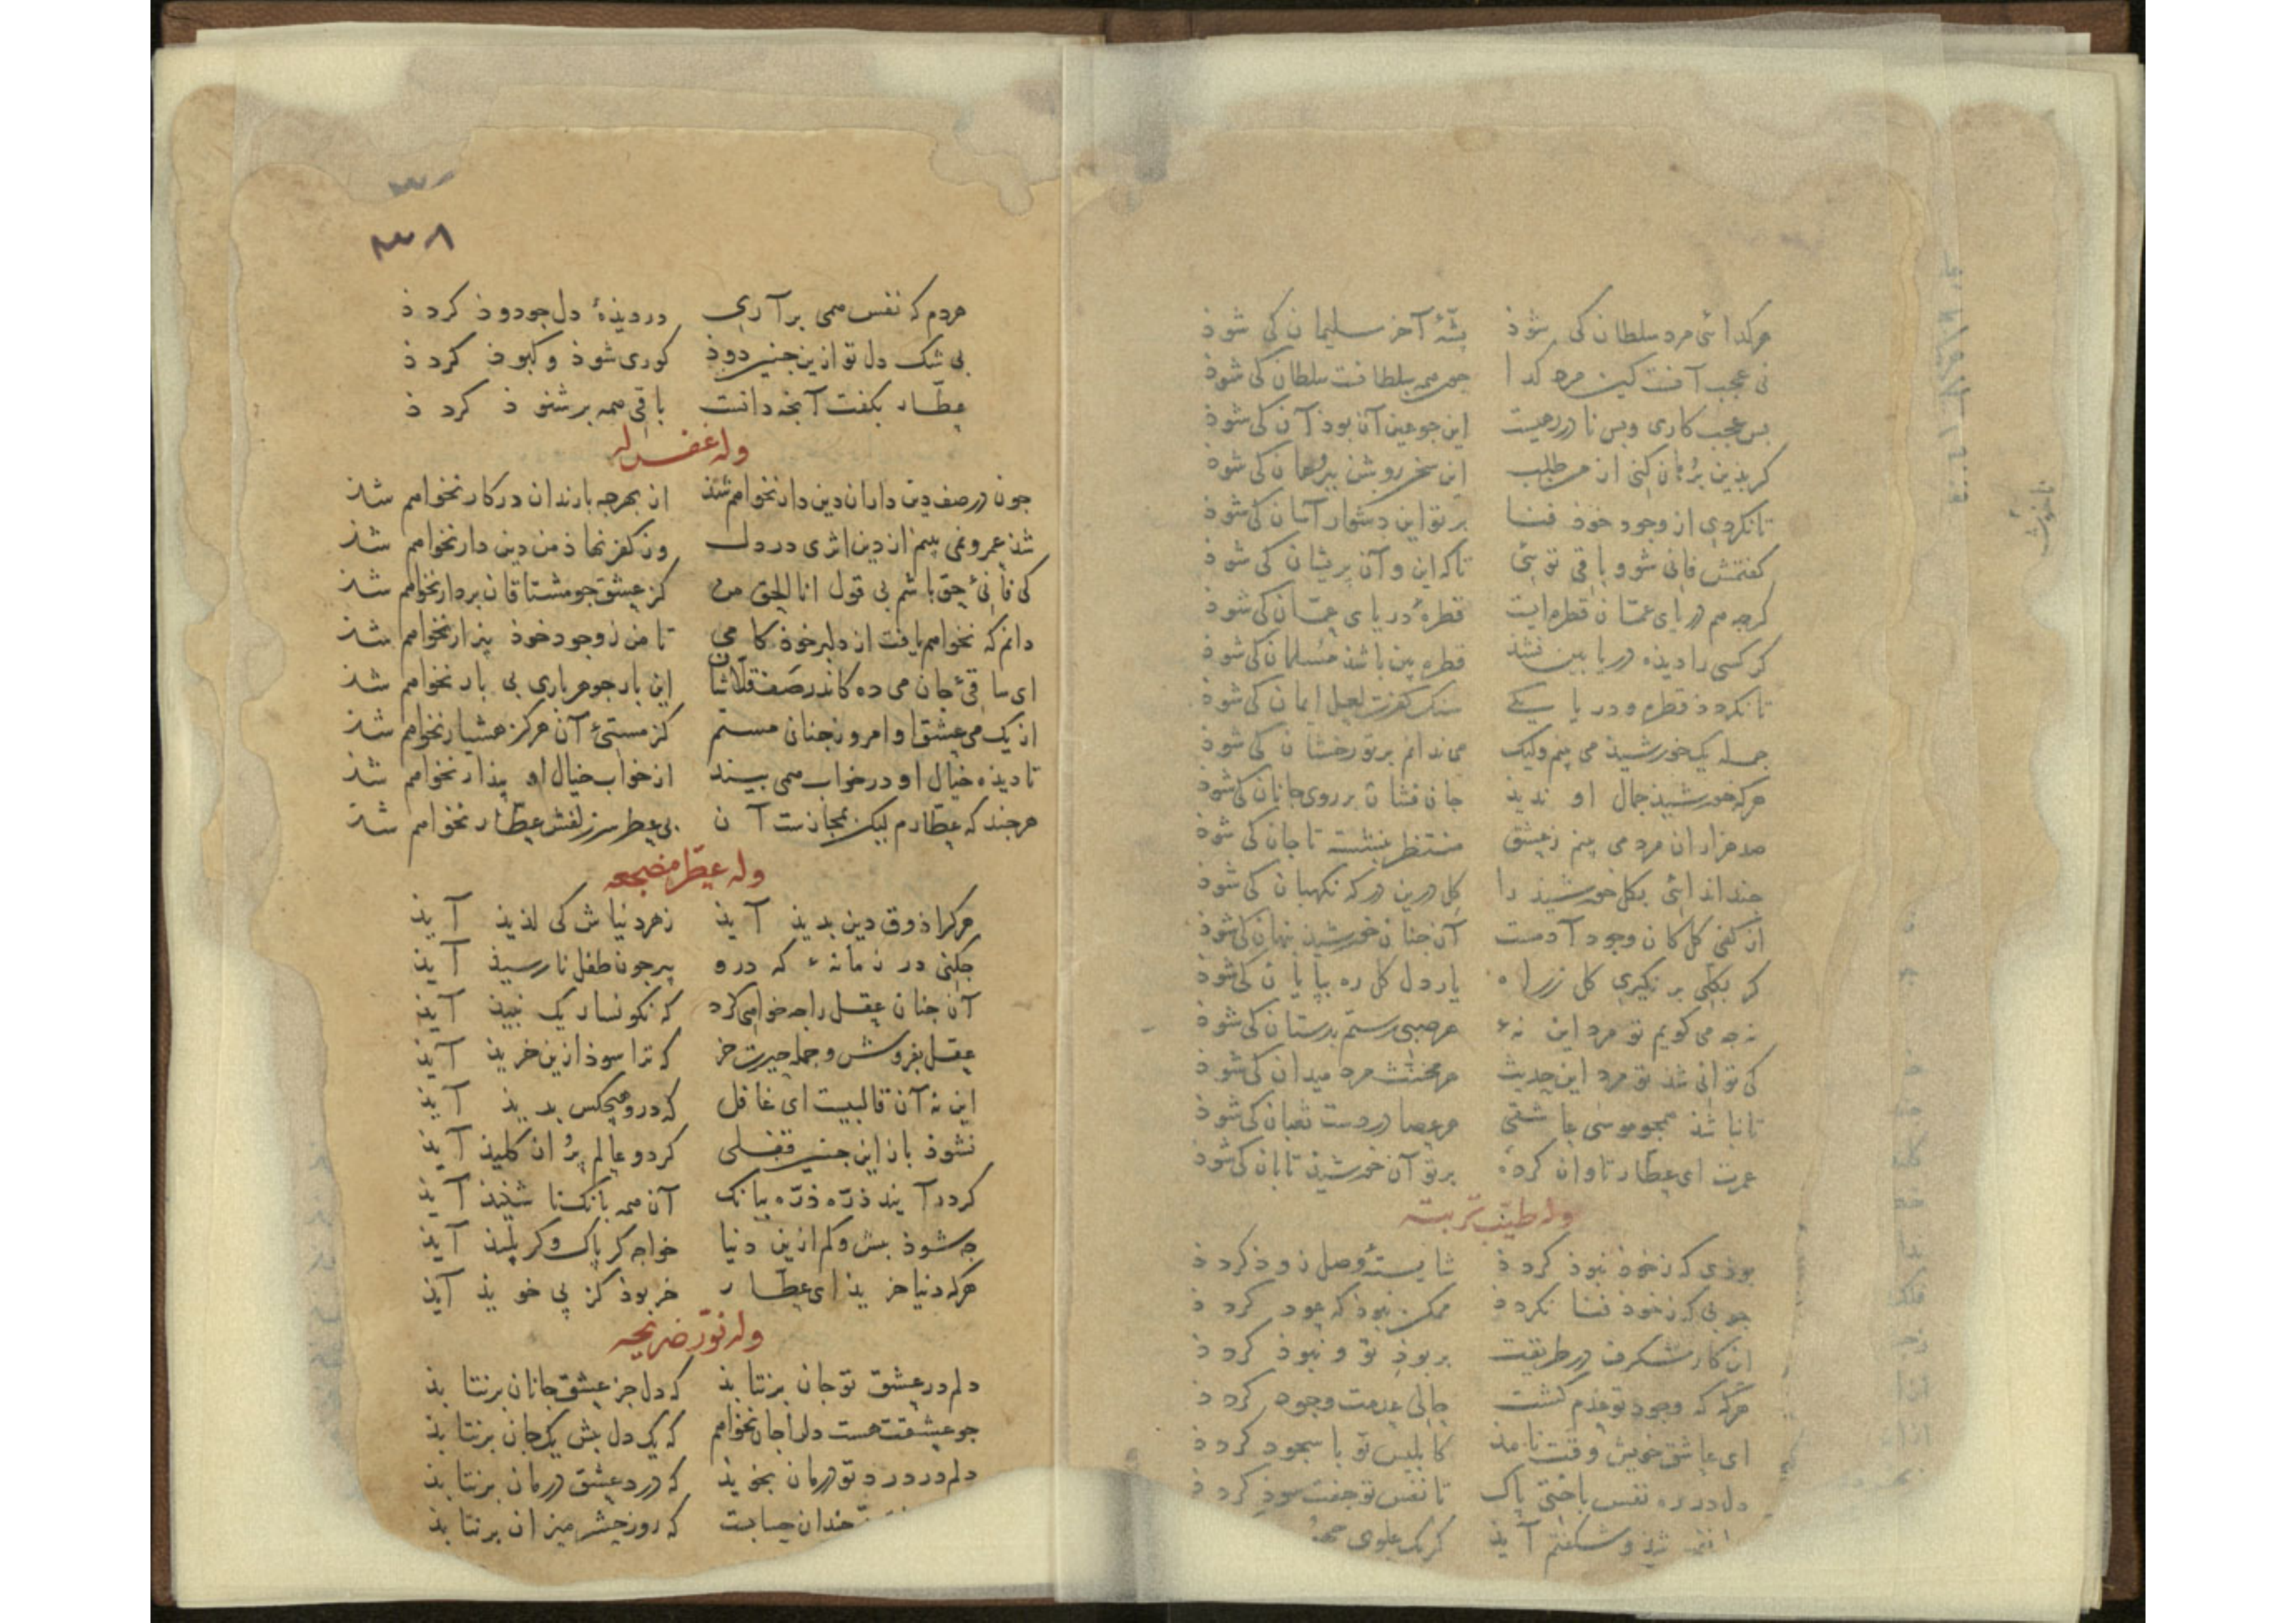 هر کدائی مرد سلطان کی شوذ بشّهٔ آخر سلیمان کی شوذ
نی عجب آنست کین مرد کدا چون همه سلطانست سلطان کی شوذ
بس عجب کاری و بس نادر رهیست این جو عین آن بوذ آن کی شوذ
کر بذین برهان کنی از من طلب این سخن روشن ببرهان کی شوذ
تا نکردی از وجود خوذ فنا بر تو این دشوار آسان کی شوذ
کفتمش فانی شو و باقی توئی تا که این و آن یکسان کی شوذ
کرجه هم دریای عمّان قطره‌ایست قطرهٔ دریای عمّان کی شوذ
کر کسی را دیذه دریا بین نشذ قطره بین باشذ مسلمان کی شوذ
تا نکردذ قطره و دریا یکی سنک کفرت لعل ایمان کی شوذ
جمله یک خورشیذ می بینم ولیک می ندانم بر تو رخشان کی شوذ
هرکه خورشیذ جمال او ندیذ جان فشان بر روی جانان کی شوذ
صد هزاران مرد می بینم ز عشق منتظر بنشسته تا جان کی شوذ
جند اندائی بکل خورشیذ را کل درین درکه نکهبان کی شوذ
از کفی کل کان وجود آدمست آن جنان خورشیذ بنهان کی شوذ
کر بکلی بر نکیری کل ز راه بار دل کل ره ببایان کی شوذ
نه جه می کویم تو مرد این نهٔ هر صبی رستم بدستان کی شوذ
کی توانی شذ تو مرد این حدیث هر مخنّث مرد میدان کی شوذ
تا نباشذ همجو موسی عاشقی هر عصا در دست ثعبان کی شوذ
عمرت ای عطّار تاوان کردهٔ بر تو آن خورشیذ تابان کی شوذ
وله طیّب تربته
بوذی که ز خوذ نبوذ کردذ شایستهٔ وصل زوذ کردذ
جوبی که ز خوذ فنا نکردذ ممکن نبوذ که عود کردذ
این کار شکرف در طریقت بر بوذ تو و نبوذ کردذ
هرکه که وجود تو عدم کشت حالی عدمت وجود کردذ
ای عاشق خویش وقت نامذ کابلیس تو با سجود کردذ
دل در ره نفس باختی باک تا نفس تو جفت سوذ کردذ
شذ و شکفتم آیذ کر یک علوی
۳۳۸
هردم که نفس همی برآری در دیذهٔ دل جو دوذ کردذ
بی شک دل تو ازین جنین دوذ کوری شوذ و کبوذ کردذ
عطّار بکفت آنجه دانست باقی همه بر شنوذ کردذ
وله غفر له
جون در صف دین داران دین دار نخواهم شذ از بهر جه با رندان در کار نخواهم شذ
شذ عمر و نمی بینم از دین اثری در دل وز کفر نهاذ من دین دار نخواهم شذ
کی فانیٔ حق باشم بی قول انا الحق من کز عشق جو مشتاقان بر دار نخواهم شذ
دانم که نخواهم یافت از دلبر خوذ کامی تا من ز وجود خوذ بیزار نخواهم شذ
ای ساقیٔ جان می ده کاندر صف قلّاشان این بار جو هر باری بی بار نخواهم شذ
از یک می عشق او امروز جنان مستم کز مستیٔ آن هرکز هشیار نخواهم شذ
تا دیذه خیال او در خواب همی بیند از خواب خیال او بیذار نخواهم شذ
هرجند که عطّارم لیکن بمجازست آن بی عطر سر زلفش عطّار نخواهم شذ
وله عطّر مضجعه
هر کرا ذوق دین بدیذ آیذ زهر دنیاش کی لذیذ آیذ
جکنی در زمانهٔ که درو بیر جون طفل نارسیذ آیذ
آن جنان عقل را جه خواهی کرد که نکونسار یک نبیذ آیذ
عقل بفروش و جمله حیرت خر که ترا سوذ ازین خریذ آیذ
این نه آن قالبیست ای غافل که درو هیجکس بدیذ آیذ
نشوذ باز این جنین قفلی کر دو عالم بر از کلیذ آیذ
کر درآیند ذرّه ذرّه ببانک آن همه بانک ناشنیذ آیذ
جه شوذ بیش و کم ازین دنیا خواجه کر باک و کر بلیذ آیذ
هرکه دنیا خریذ ای عطّار خر بوذ کز بی خویذ آیذ
وله نوّر ضریحه
دلم در عشق تو جان برنتابذ که دل جز عشق جانان برنتابذ
جو عشقت هست دل را جان نخواهم که یک دل بیش یک جان برنتابذ
دلم در درد تو درمان نجویذ که درد عشق درمان برنتابذ
جندان حسابت که روز حشر میزان برنتابذ